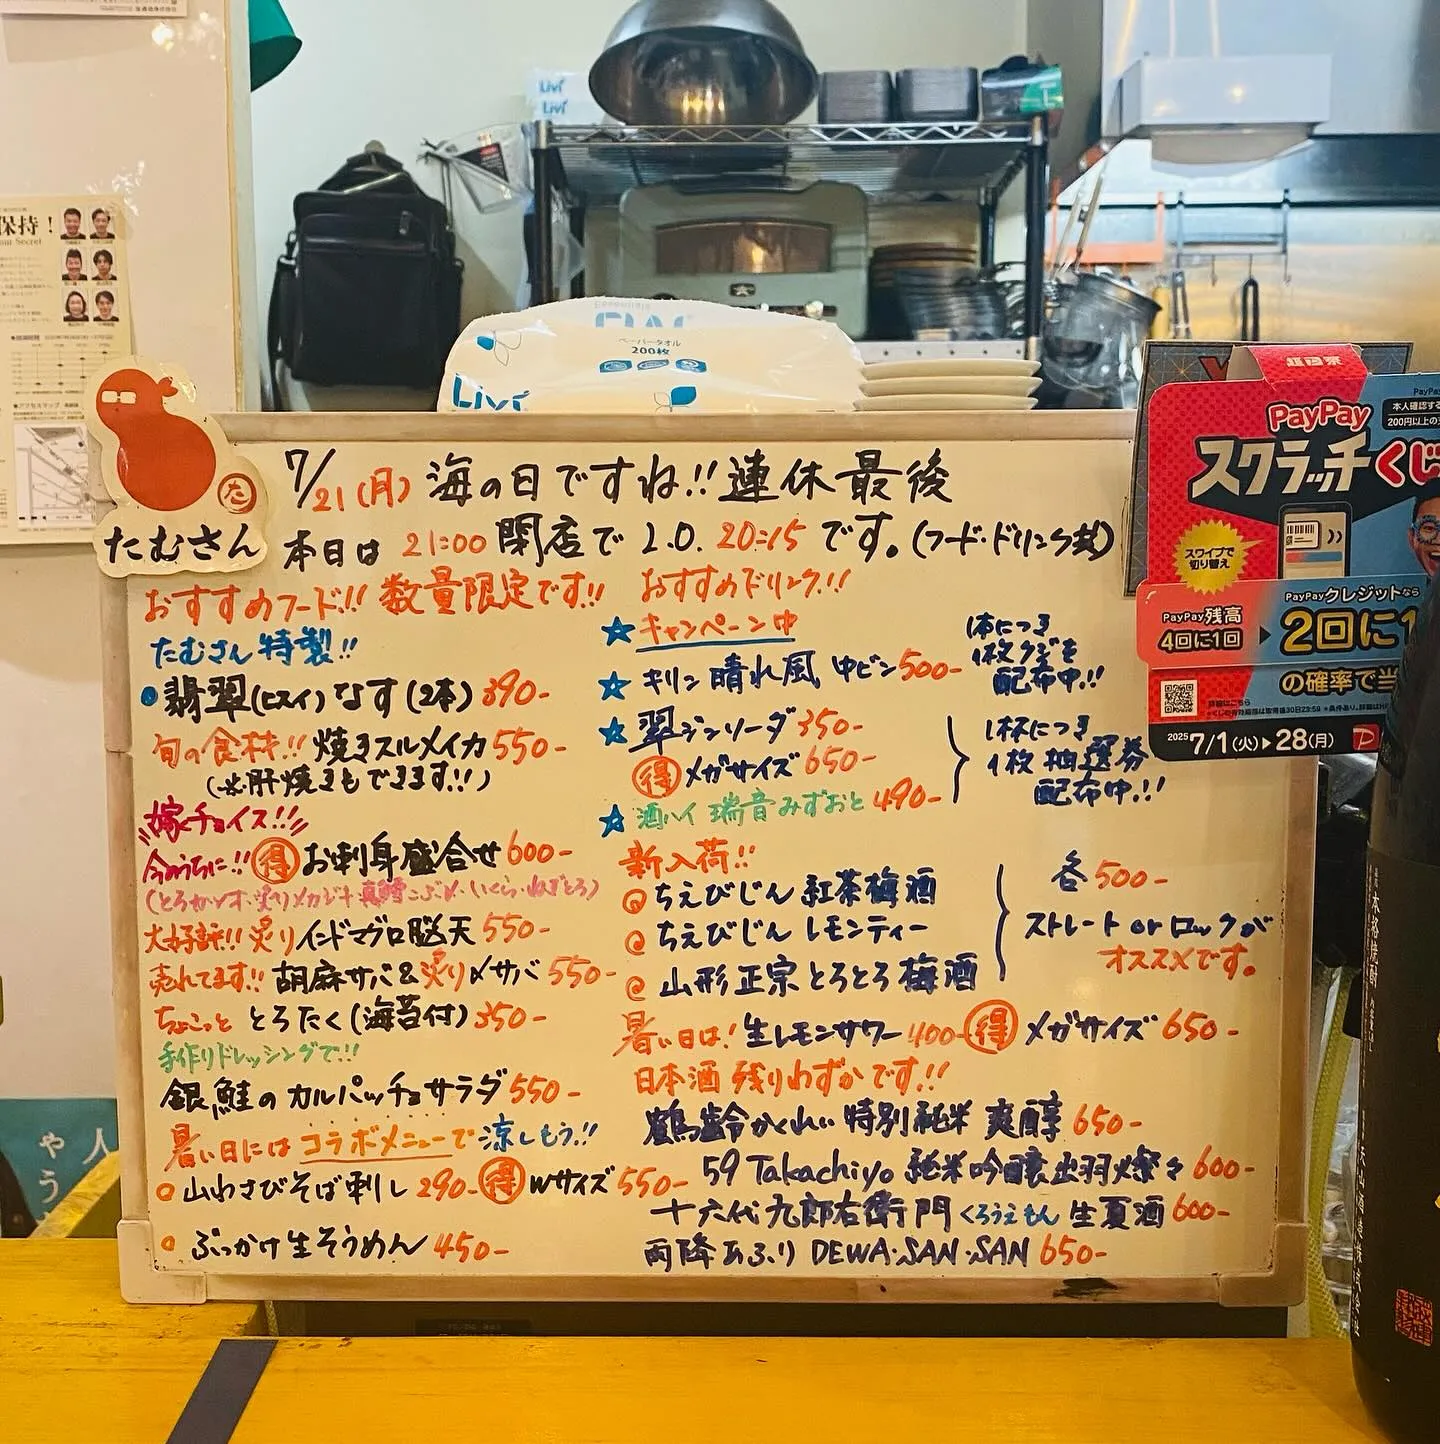 保持!
Livi
Livi
Livi
ペーパータオル
200枚
たむさん
た
7/21(月) 海の日ですね!!連休最後
本日は 21:00 閉店で L.O. 20:15 です。(フード・ドリンク共)
おすすめフード!! 数量限定です!!
たむさん特製!!
翡翠(ヒスイ)なす(2本) 390-
旬の食材!! 焼きスルメイカ 550-
(※肝焼きもできます!!)
嫁チョイス!!
今のうちに!! 得 お刺身盛合せ 600-
(とろかつお・炙りメカジキ 真鱈こぶ〆・いくら・ねぎとろ)
大好評!! 炙りインドマグロ脳天 550-
売れてます!! 胡麻サバ&炙り〆サバ 550-
ちょこっと とろたく(海苔付) 350-
手作りドレッシングで!!
銀鮭のカルパッチョサラダ 550-
暑い日にはコラボメニューで涼しもう!!
山わさびそば刺し 290- 得 Wサイズ 550-
ぶっかけ生そうめん 450-
おすすめドリンク!!
☆キャンペーン中
☆キリン 晴れ風 中ビン 500-
1本につき
1枚クジを
配布中!!
☆翠ジンソーダ 350-
得 メガサイズ 650-
☆酒ハイ 瑞音 みずおと 490-
1杯につき
1枚 抽選券
配布中!!
新入荷!!
ちえびじん 紅茶梅酒
ちえびじん レモンティー
山形正宗 とろとろ梅酒
各500-
ストレート or ロックが
オススメです。
暑い日は! 生レモンサワー 400- 得 メガサイズ 650-
日本酒 残りわずかです!!
鶴齢 かくれい 特別純米 爽醇 650-
59 Takachiyo 純米吟醸 出羽燦々 600-
十六代九郎右衛門 くろうえもん 生夏酒 600-
雨降 あふり DEWA・SAN・SAN 650-
PayPay
スクラッチくじ
スワイプで
切り替え
本人確認する
200円以上の
PayPay残高
4回に1回
PayPayクレジットなら
2回に1
の確率で当
2025 7/1(火)▶28(月)